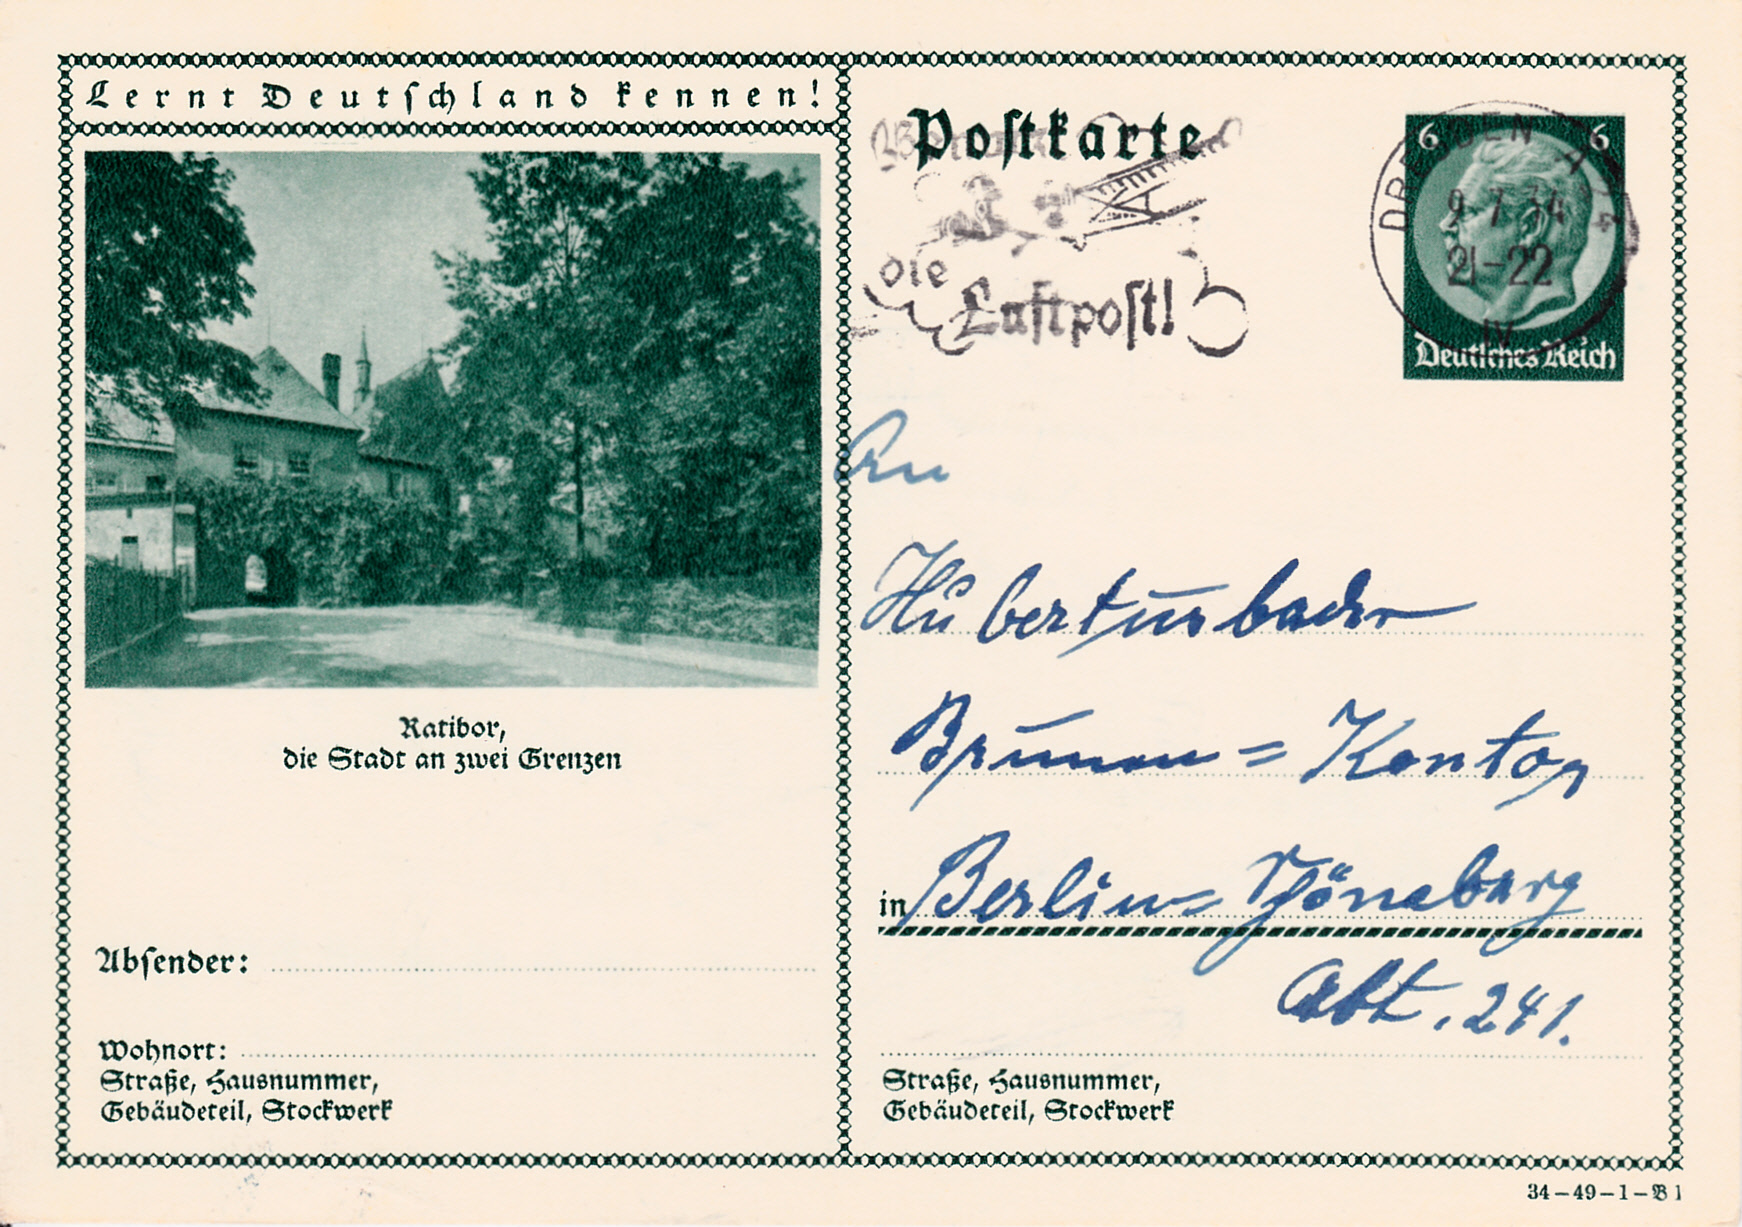 Lernt Deutschland kennen!
Ratibor,
die Stadt an zwei Grenzen
Absender:
Wohnort:
Straße, Hausnummer,
Gebäudeteil, Stockwerk
Postkarte
die
Luftpost!
6 6
DRESDEN A
9.7.34
21-22
IV
Deutsches Reich
An
Hubertusbader
Brunnen = Kontor
in Berlin = Schöneberg
Abt. 241.
Straße, Hausnummer,
Gebäudeteil, Stockwerk
34-49-1-B 1